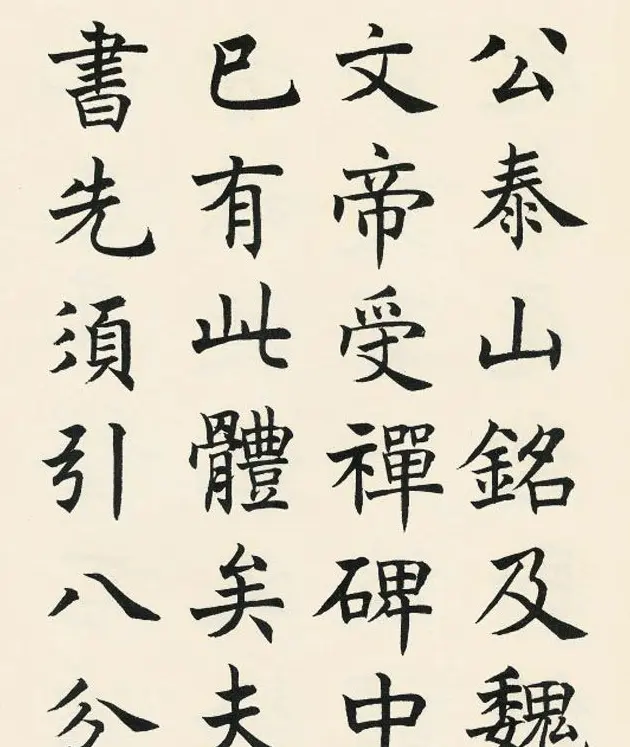 公泰山銘及魏
文帝受禪碑中
已有此體矣夫
書先須引八分